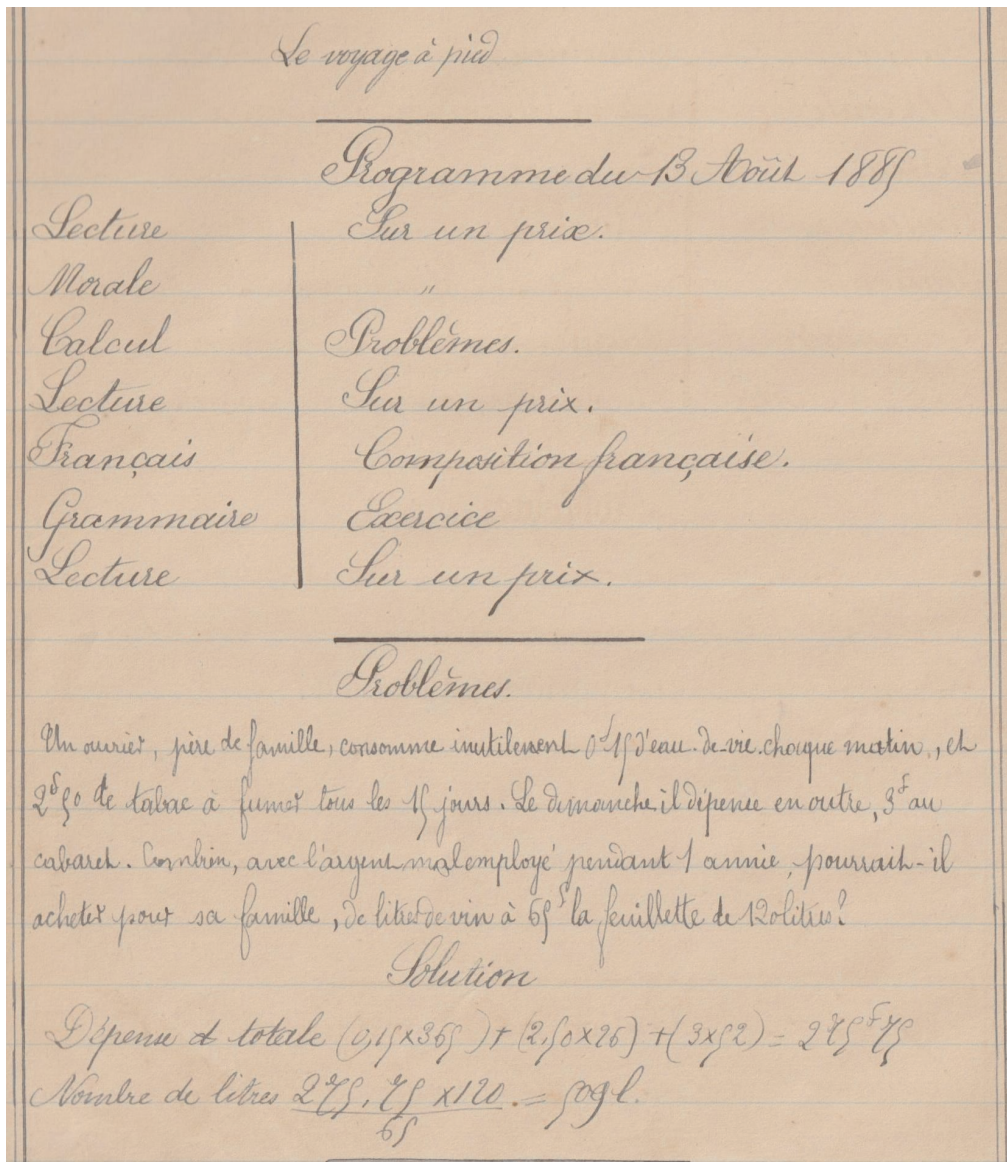 Le voyage à pied
Programme du 13 Août 1885
Lecture Sur un prix.
Morale "
Calcul Problèmes.
Lecture Sur un prix.
Français Composition française.
Grammaire Exercice
Lecture Sur un prix.
Problèmes.
Un ouvrier, père de famille, consomme inutilement 0f15 d'eau-de-vie chaque matin, et
2f50 de tabac à fumer tous les 15 jours. Le dimanche il dépence en outre, 3f au
cabaret. Combien, avec l'argent mal employé pendant 1 année, pourrait-il
acheter pour sa famille, de litres de vin à 65f la feuillette de 120 litres?
Solution
Dépense totale (0,15x365) + (2,50x26) + (3x52) = 275f75
Nombre de litres 275,75 x120 = 509 l.
65